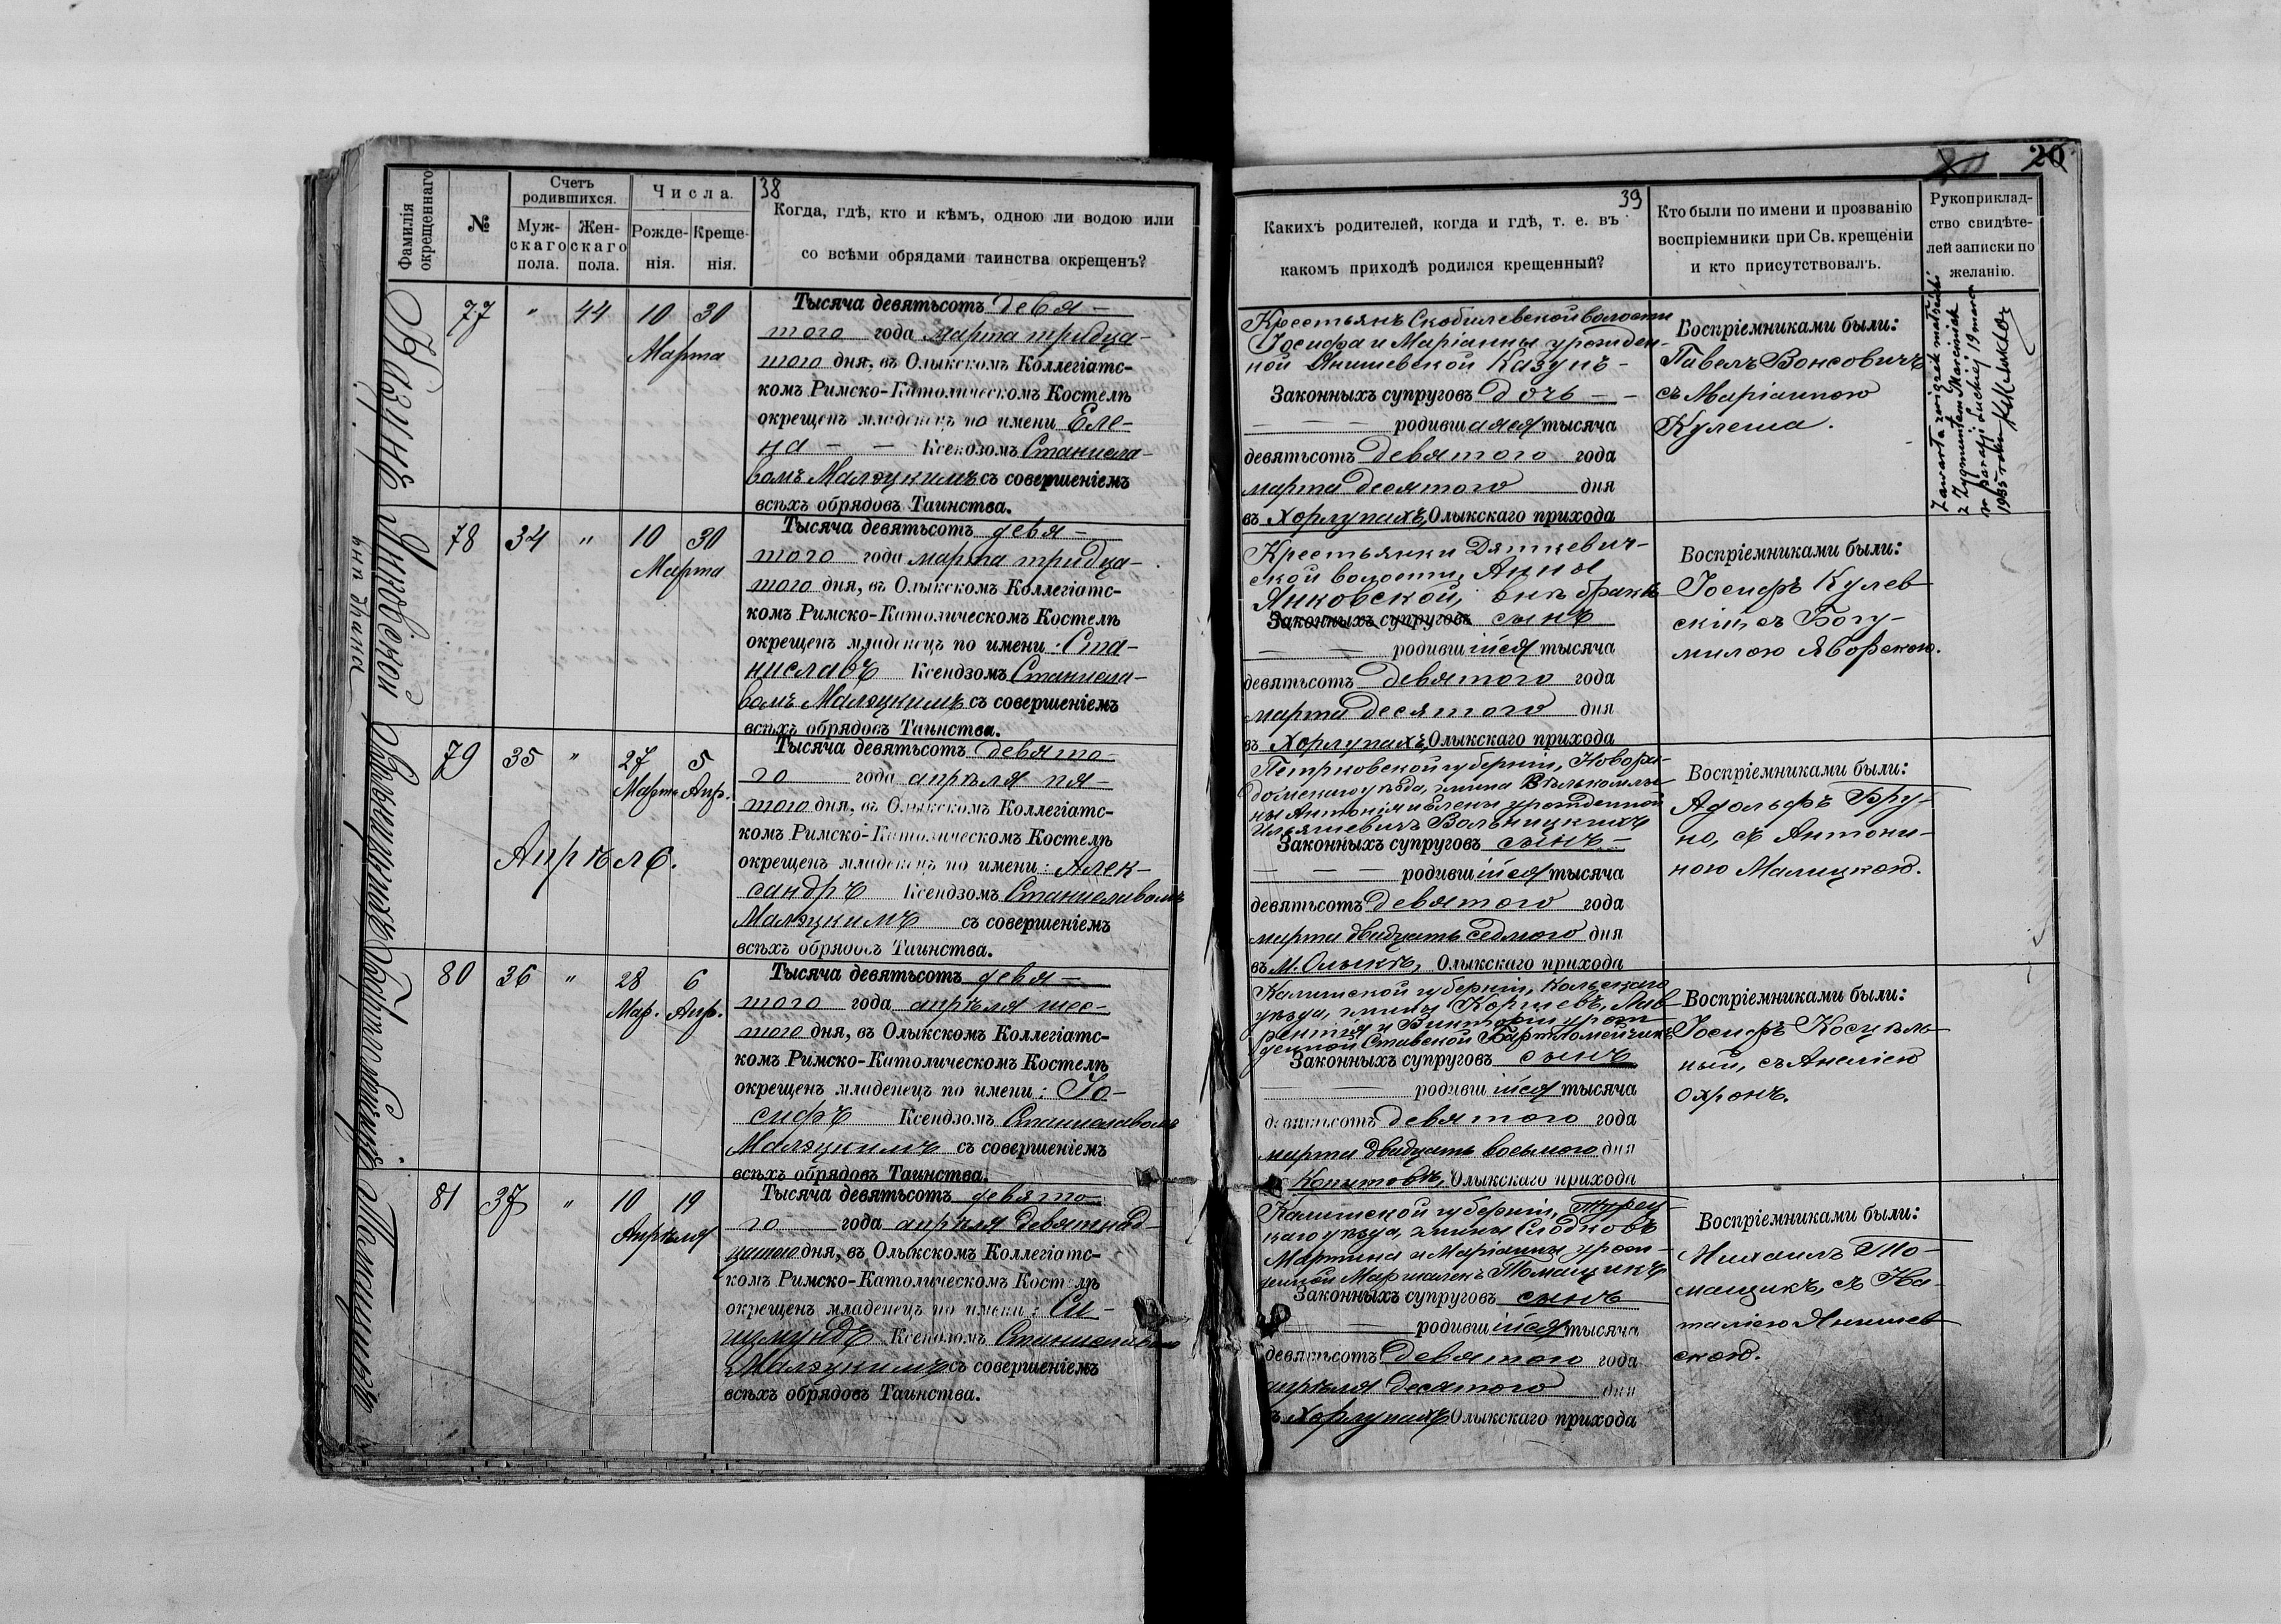 38
Фамилія окрещеннаго
№
Счетъ родившихся.
Муж-скаго пола.
Жен-скаго пола.
Числа.
Рожде-нія.
Креще-нія.
Когда, гдѣ, кто и кѣмъ, одною ли водою или
со всѣми обрядами таинства окрещенъ?
Казунъ
77 " 44 10 30
Марта
Тысяча девятьсотъ девя-
таго года марта тридца-
таго дня, въ Олыкскомъ Коллегіатс-
комъ Римско-Католическомъ Костелѣ
окрещенъ младенецъ по имени Еле-
на Ксендзомъ Станисла-
вомъ Малэцкимъ съ совершеніемъ
всѣхъ обрядовъ Таинства.
Янковской
78 34 " 10 30
Марта
Тысяча девятьсотъ девя-
таго года марта тридца-
таго дня, въ Олыкскомъ Коллегіатс-
комъ Римско-Католическомъ Костелѣ
окрещенъ младенецъ по имени: Ста-
ниславъ Ксендзомъ Станисла-
вомъ Малэцкимъ съ совершеніемъ
всѣхъ обрядовъ Таинства.
79 35 " 27 5
Марта Апр.
Апрѣль.
Тысяча девятьсотъ девято-
го года апрѣля пя-
таго дня, въ Олыкскомъ Коллегіатс-
комъ Римско-Католическомъ Костелѣ
окрещенъ младенецъ по имени: Алек-
сандръ Ксендзомъ Станиславомъ
Малэцкимъ съ совершеніемъ
всѣхъ обрядовъ Таинства.
80 36 " 28 6
Мар. Апр.
Тысяча девятьсотъ девя-
таго года апрѣля шес-
таго дня, въ Олыкскомъ Коллегіатс-
комъ Римско-Католическомъ Костелѣ
окрещенъ младенецъ по имени: Іо-
сифъ Ксендзомъ Станиславомъ
Малэцкимъ съ совершеніемъ
всѣхъ обрядовъ Таинства.
Томащикъ
81 37 " 10 19
Апрѣля
Тысяча девятьсотъ девято-
го года апрѣля девятнад-
цатаго дня, въ Олыкскомъ Коллегіатс-
комъ Римско-Католическомъ Костелѣ
окрещенъ младенецъ по имени: Си-
гизмундъ Ксендзомъ Станиславомъ
Малэцкимъ съ совершеніемъ
всѣхъ обрядовъ Таинства.
39
20
Какихъ родителей, когда и гдѣ, т. е. въ
какомъ приходѣ родился крещенный?
Кто были по имени и прозванію
воспріемники при Св. крещеніи
и кто присутствовалъ.
Рукоприклад-
ство свидѣте-
лей записки по
желанію.
Крестьянъ Скобилевской волости
Іосифа и Маріанны урожден-
ной Янишевской Казунъ-
Законныхъ супруговъ дочь
родившаяся тысяча
девятьсотъ девятого года
марта десятого дня
въ Хорлупахъ, Олыкскаго прихода
Воспріемниками были:
Павелъ Вонсовичъ
съ Маріанною
Кулеша.
Zawarła związek małżeński
z Zygmuntem Marciniak
w parafji Łuckiej 19 marca
1935 roku
Крестьянки Дяткевич-
ской волости, Анны
Янковской, внѣ брака
Законныхъ супруговъ сынъ
родившійся тысяча
девятьсотъ девятого года
марта десятого дня
въ Хорлупахъ, Олыкскаго прихода
Воспріемниками были:
Іосифъ Кулев-
скій, съ Богу-
милою Яворскою.
Петроковской губерніи, Новора-
домскаго уѣзда, гмина
ны Антонія и Елены урожденной
Ильяшевичъ Вольницкихъ
Законныхъ супруговъ сынъ
родившійся тысяча
девятьсотъ девятого года
марта двадцать седьмого дня
въ М. Олыкѣ, Олыкскаго прихода
Воспріемниками были:
Адольфъ Бру-
но, съ Антони-
ною Малицкою.
Калишской губерніи, Кольскаго
уѣзда, гмины Коршевъ, Лав-
рентія и Викторіи урож-
денной Ставской Бартломейчикъ
Законныхъ супруговъ сынъ
родившійся тысяча
девятьсотъ девятого года
марта двадцать восьмого дня
Олыкскаго прихода
Воспріемниками были:
Іосифъ Косцѣль-
ный, съ Анеліею
Охронъ.
Калишской губерніи, Турец-
каго уѣзда, гмины Слодковъ
Мартина и Маріанны урож-
денной Маршалекъ Томащикъ
Законныхъ супруговъ сынъ
родившійся тысяча
девятьсотъ девятого года
апрѣля десятого дня
въ Хорлупахъ Олыкскаго прихода
Воспріемниками были:
Михаилъ То-
мащикъ, съ На-
таліею Янишев-
скою.